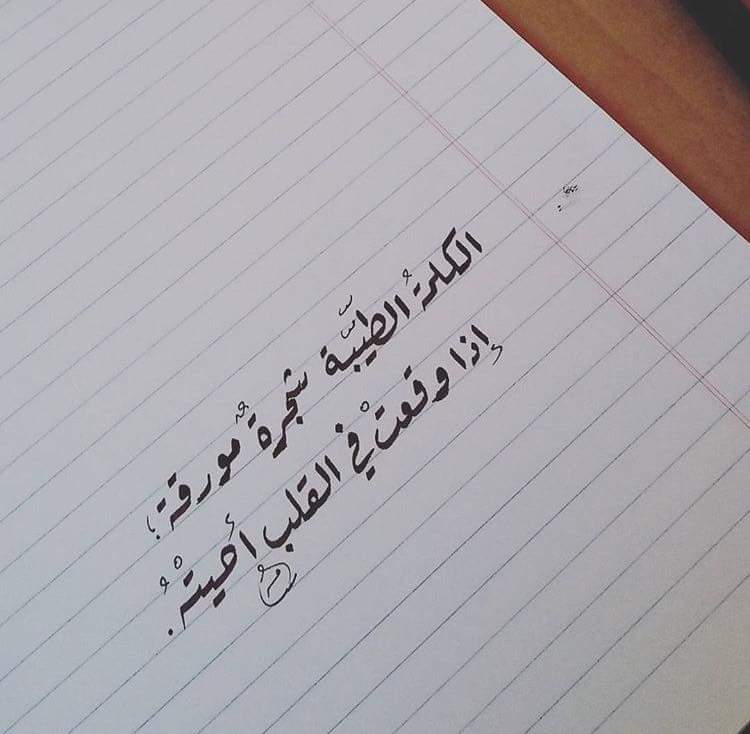 الكلمةُ الطيّبة شجرةٌ مُورقة؛
إذا وقعتْ في القلب أحيتْهُ.